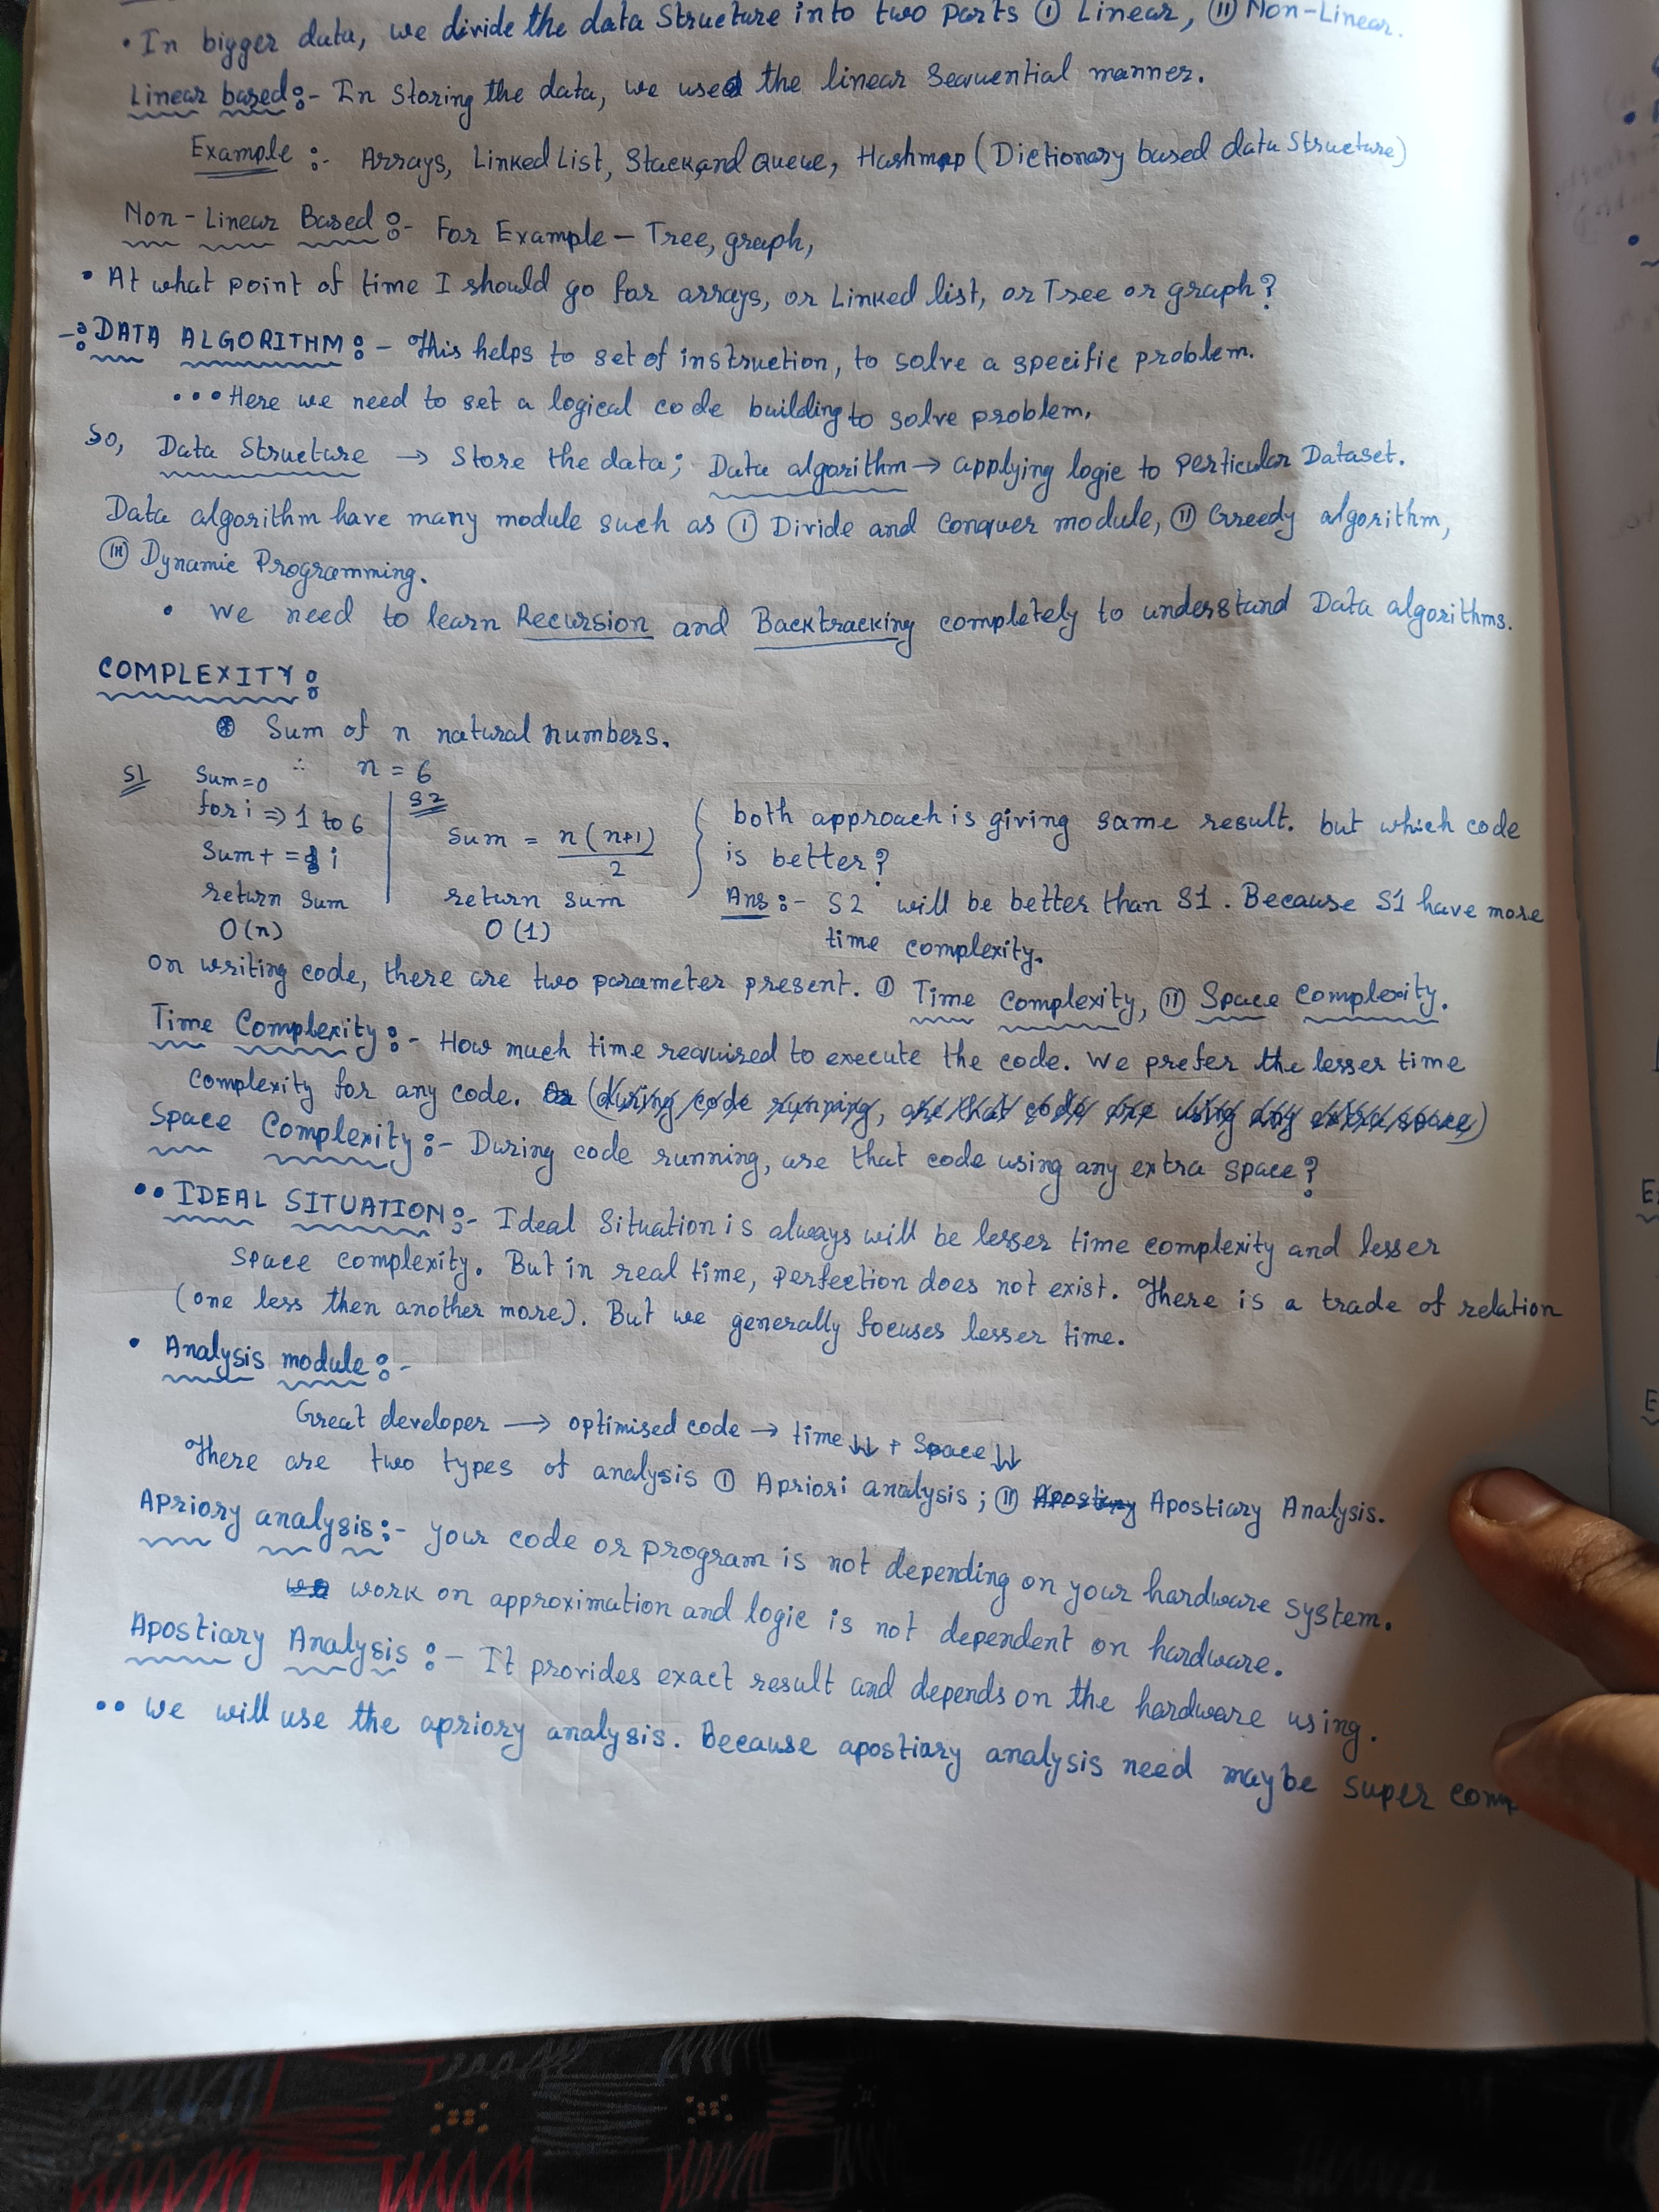 • In bigger data, we divide the data Structure into two parts ① Linear, ⑪ Non-Linear.
Linear based:- In Storing the data, we used the linear Sequential manner.
Example :- Arrays, Linked List, Stack and Queue, Hashmap (Dictionary based data Structure)
Non-Linear Based :- For Example - Tree, graph,
• At what point of time I should go for arrays, or Linked list, or Tree or graph?
→ DATA ALGORITHM :- This helps to set of instruction, to solve a specific problem.
... Here we need to set a logical code building to solve problem.
So, Data Structure → Store the data; Data algorithm → applying logic to perticular Dataset.
Data algorithm have many module such as Ⓘ Divide and Conquer module, Ⓘⓘ Greedy algorithm,
(III) Dynamic Programming.
• We need to learn Recursion and Backtracking completely to understand Data algorithms.
COMPLEXITY :
⊛ Sum of n natural numbers.
∴ n = 6
S1 Sum=0
for i ⇒ 1 to 6
Sum+ = i
return Sum
O(n)
S2
Sum = n(n+1)/2
return sum
O(1)
both approach is giving same result. but which code
is better?
Ans :- S2 will be better than S1. Because S1 have more
time complexity.
On writing code, there are two parameter present. Ⓘ Time Complexity, (II) Space Complexity.
Time Complexity :- How much time required to execute the code. We prefer the lesser time
Complexity for any code. (during code running, are that code are using any extra space)
Space Complexity :- During code running, are that code using any extra space?
•• IDEAL SITUATION :- Ideal Situation is always will be lesser time complexity and lesser
Space complexity. But in real time, perfection does not exist. There is a trade of relation
(one less then another more). But we generally focuses lesser time.
• Analysis module :-
Great developer → optimised code → time ↓↓ + Space ↓↓
There are two types of analysis Ⓘ Apriori analysis; (II) Apostiary Apostiary Analysis.
Apriory analysis :- your code or program is not depending on your hardware system.
we work on approximation and logic is not dependent on hardware.
Apostiary Analysis :- It provides exact result and depends on the hardware using.
•• We will use the apriory analysis. Because apostiary analysis need maybe super comp